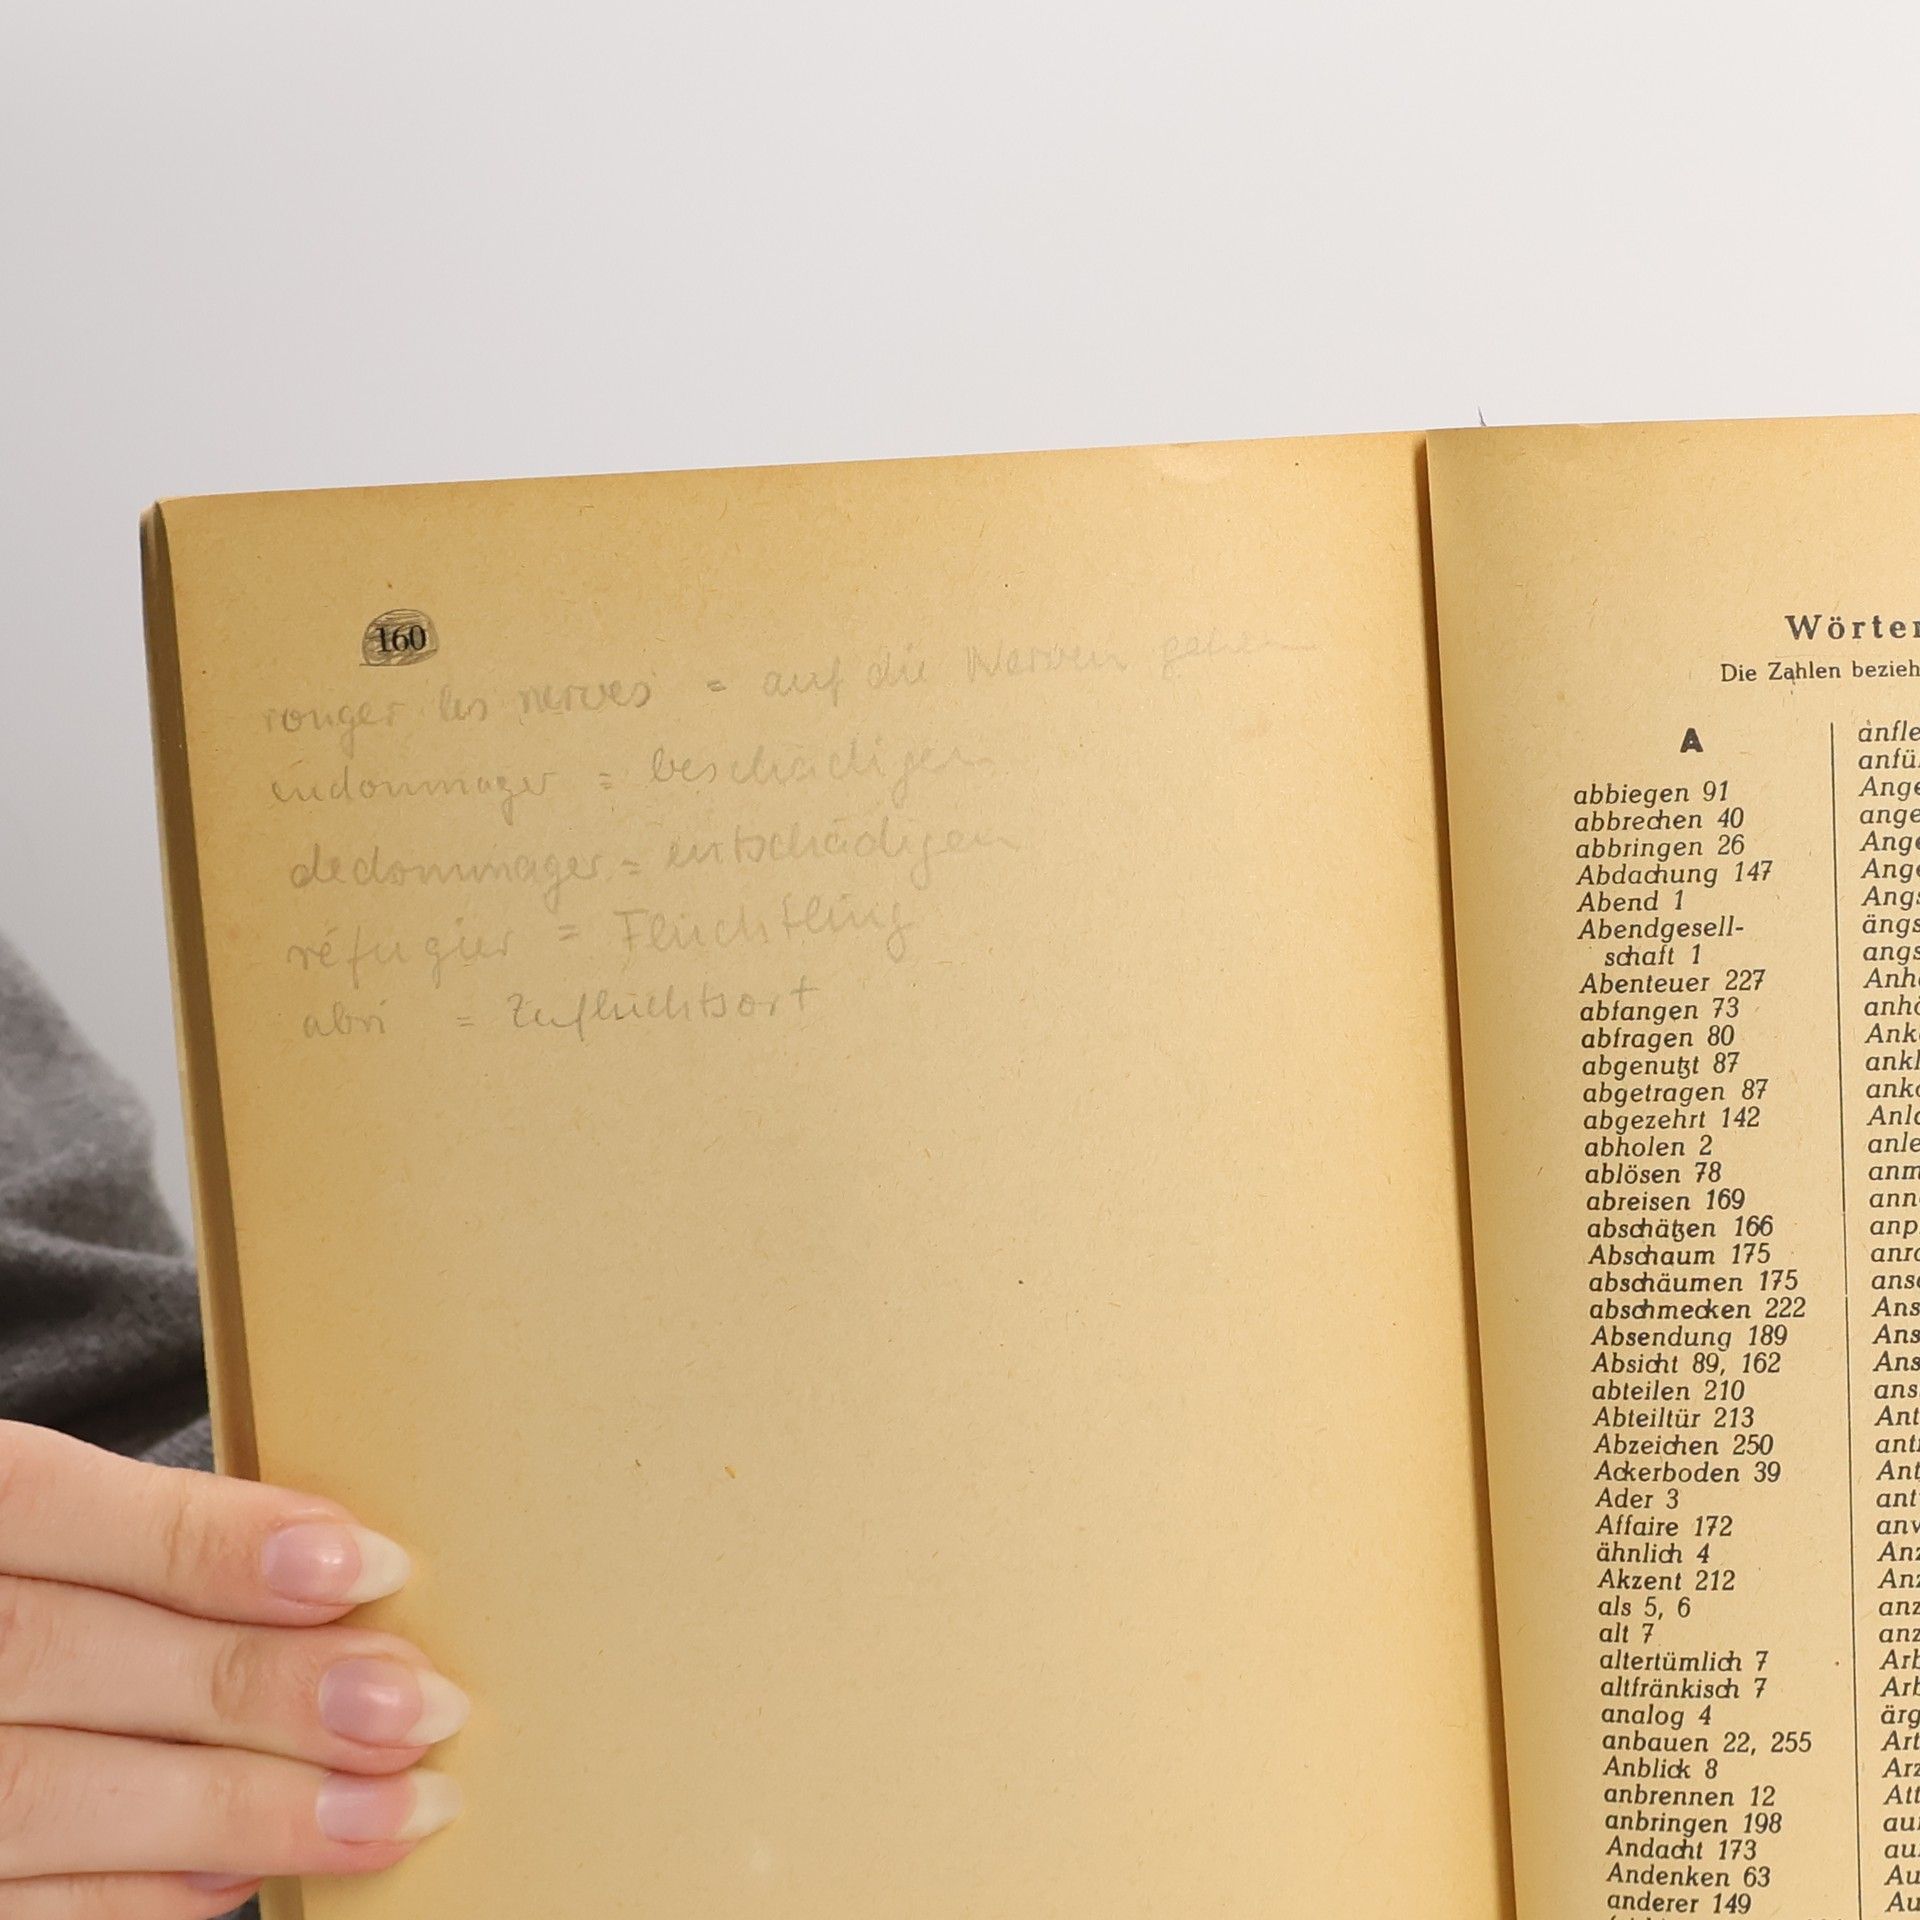 160
ronger les nerves = auf die Nerven gehen
endommager = beschädigen
dedommager = entschädigen
réfugier = Flüchtling
abri = Zufluchtsort
Wörter
Die Zahlen bezieh
A
abbiegen 91
abbrechen 40
abbringen 26
Abdachung 147
Abend 1
Abendgesell-
schaft 1
Abenteuer 227
abfangen 73
abfragen 80
abgenutzt 87
abgetragen 87
abgezehrt 142
abholen 2
ablösen 78
abreisen 169
abschätzen 166
Abschaum 175
abschäumen 175
abschmecken 222
Absendung 189
Absicht 89, 162
abteilen 210
Abteiltür 213
Abzeichen 250
Ackerboden 39
Ader 3
Affaire 172
ähnlich 4
Akzent 212
als 5, 6
alt 7
altertümlich 7
altfränkisch 7
analog 4
anbauen 22, 255
Anblick 8
anbrennen 12
anbringen 198
Andacht 173
Andenken 63
anderer 149
anfle
anfü
Ange
ange
Ange
Ange
Angs
ängs
angs
Anh
anhö
Ank
ankl
anko
Anla
anle
anm
ann
anp
anro
ans
Ans
Ans
Ans
ans
Ant
ant
Ant
ant
anv
Anz
Anz
anz
anz
Arb
Arb
ärg
Art
Arz
Att
au
au
Au
Au